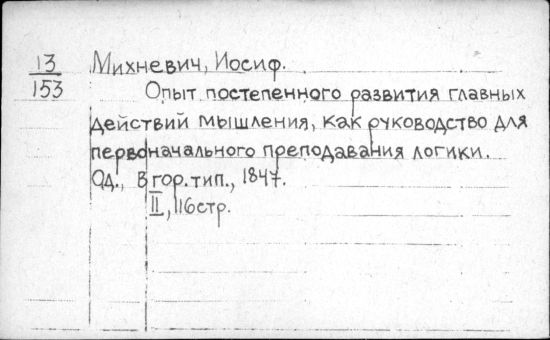 13
153
Михневич, Иосиф.
Опыт постепенного развития главных
действий мышления, как руководство для
первоначального преподавания логики.
Од., В гор. тип., 1847.
II, 116 стр.